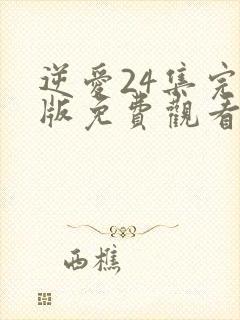 逆愛24集完
版免費觀看
西樵